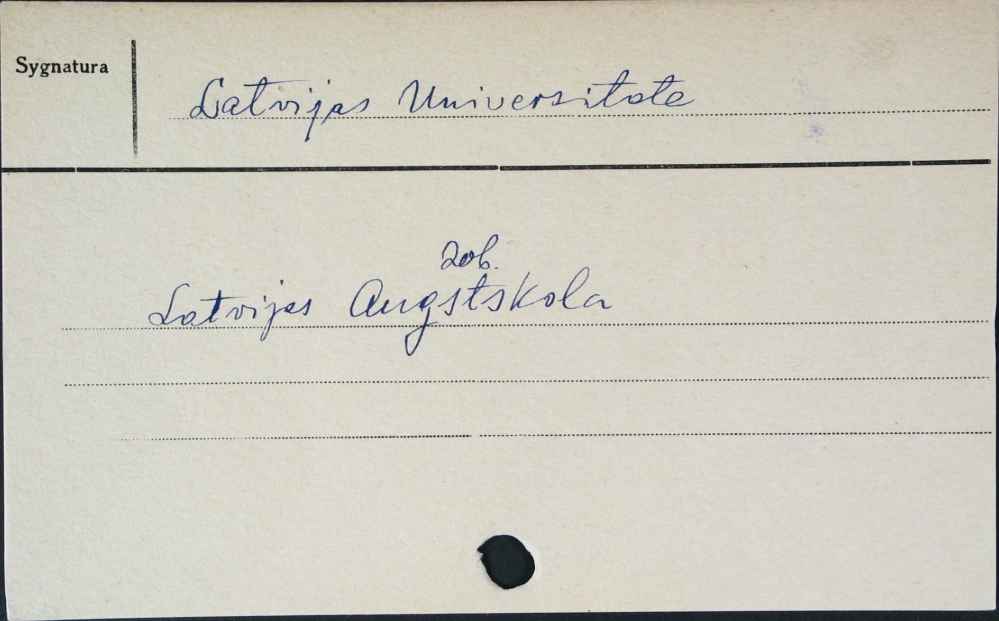 Sygnatura
Latvijas Universitate
zob.
Latvijas Augstskola